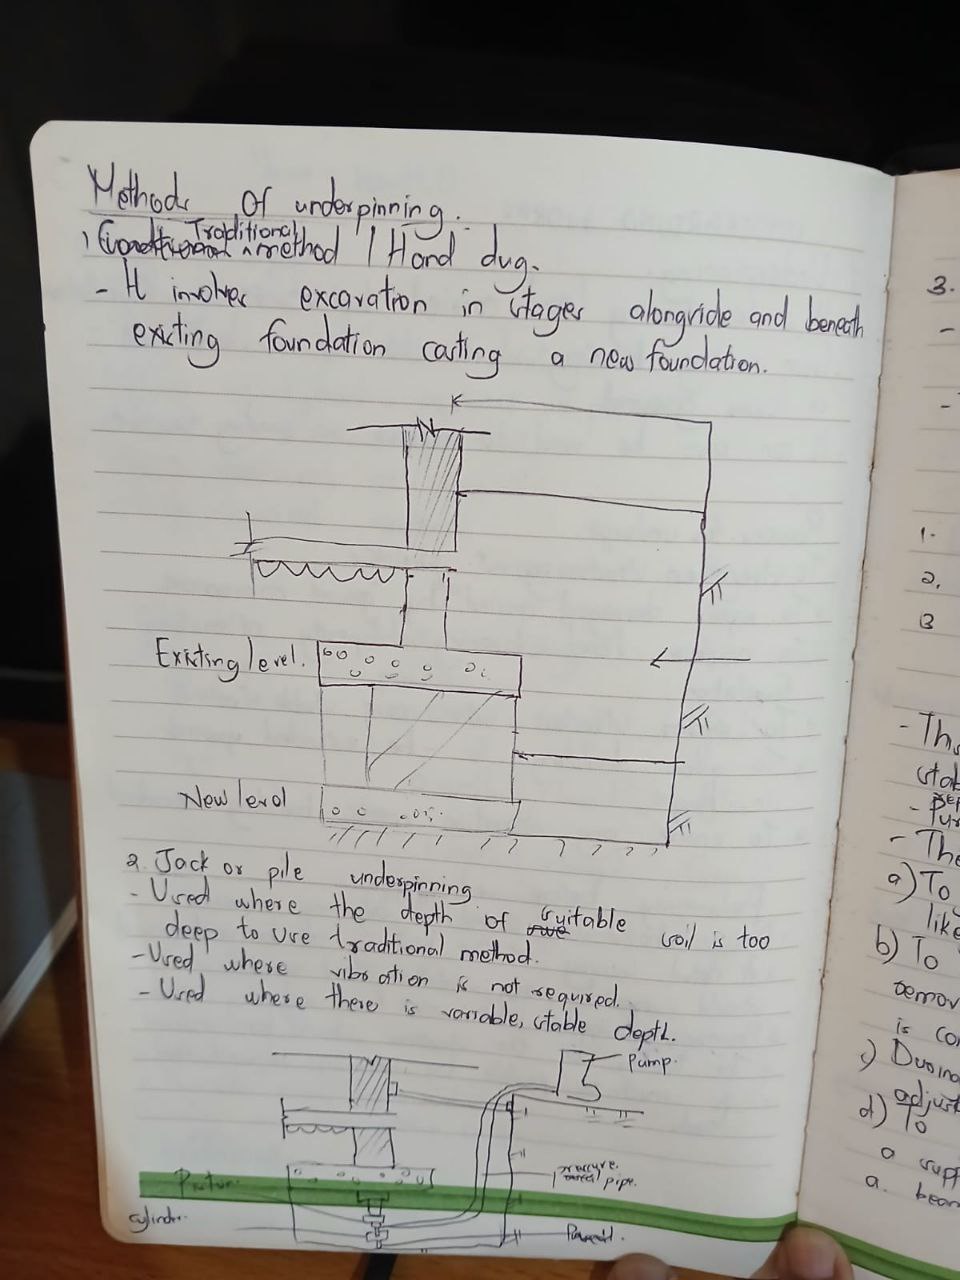 Methods of underpinning.
1) Traditional method / Hand dug.
- It involves excavation in stages alongside and beneath
existing foundation casting a new foundation.
Existing level.
New level
2. Jack or pile underpinning
- Used where the depth of suitable soil is too
deep to use traditional method.
- Used where vibration is not required.
- Used where there is variable, stable depth.
Pump.
pressure
pipe.
cylinder.
3.
-
-
1.
2.
3
- Th
stab
- The
a) To
like
b) To
remov
is co
c) During
adjust
d) To
a supp
a. beam